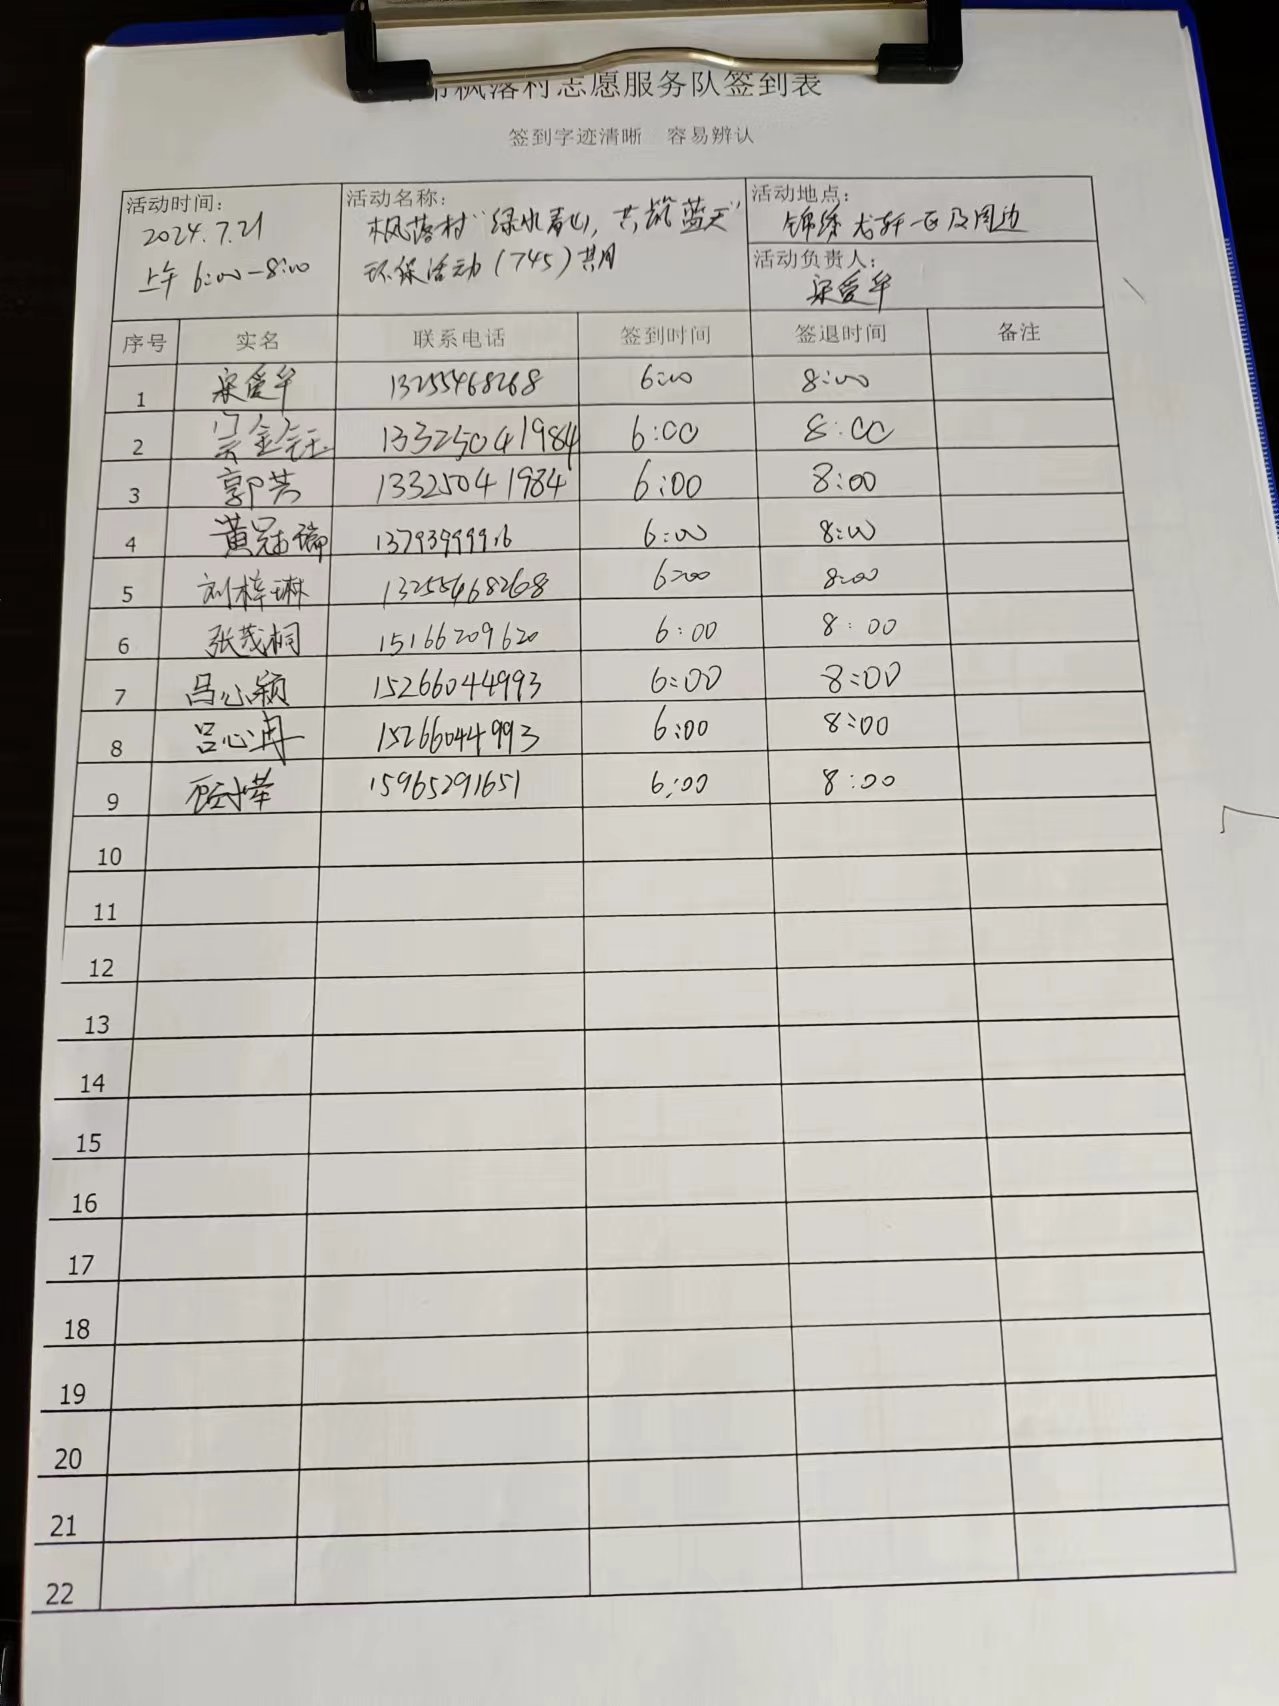 枫落村志愿服务队签到表
签到字迹清晰 容易辨认
活动时间: 2024.7.21
上午 6:00-8:00
活动名称: 枫落村“绿水青山,共筑蓝天”
环保活动(745)共用
活动地点: 锦绣龙轩一区及周边
活动负责人: 宋爱华
序号 实名 联系电话 签到时间 签退时间 备注
1 宋爱华 13255468268 6:00 8:00
2 13325041984 6:00 8:00
3 郭芸 13325041984 6:00 8:00
4 黄冠瑞 6:00 8:00
5 刘梓琳 13255468268 6:00 8:00
6 张茂桐 15166209620 6:00 8:00
7 吕心颖 15266044993 6:00 8:00
8 吕心冉 15266044993 6:00 8:00
9 15965291651 6:00 8:00
10
11
12
13
14
15
16
17
18
19
20
21
22